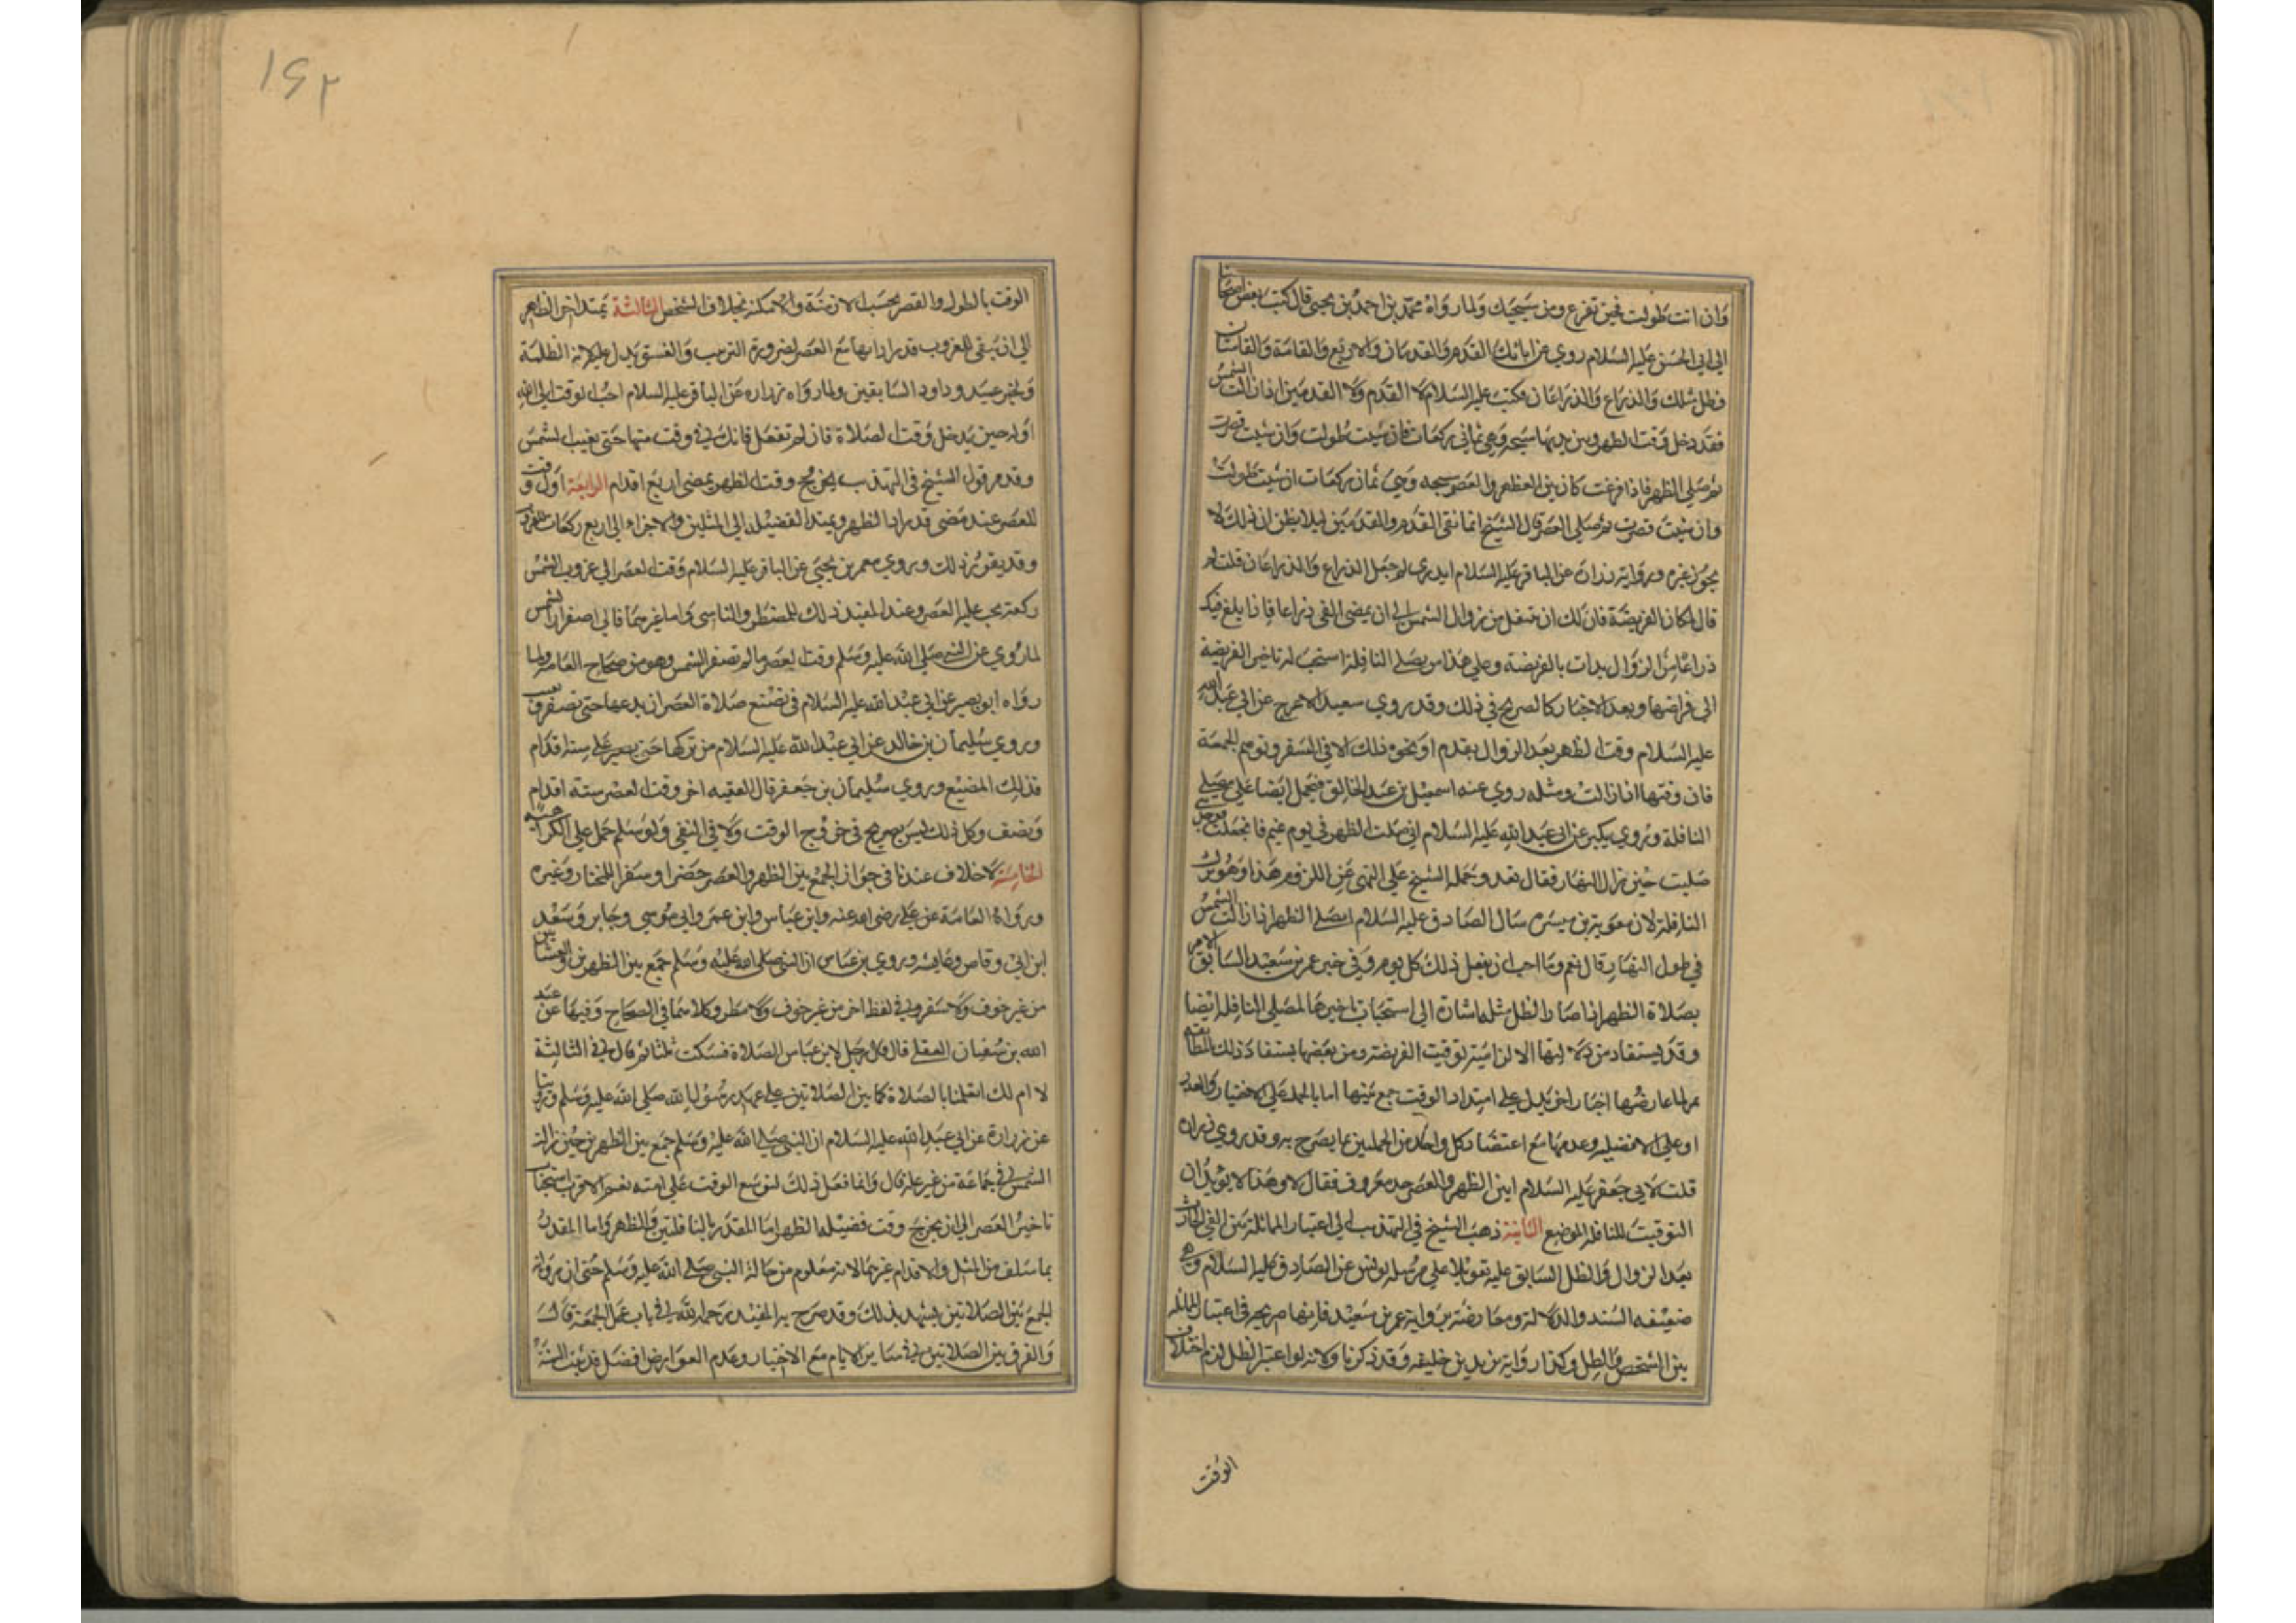 وان انت طولت فحين تفرغ من سبحتك ولما رواه محمد بن احمد بن يحيى قال كتب بعض اصحابنا
الى ابى الحسن عليه السلام روي عن ابائك القدم والقدمان والاربع والقامة والقامتان
وظل مثلك والذراع والذراعان فكتب عليه السلام لا القدم ولا القدمين اذا زالت الشمس
فقد دخل وقت الظهر وبين يديها سبحة وهي ثماني ركعات فان شئت طولت وان شئت قصرت
ثم صلي الظهر فاذا فرغت كان بين الظهر والعصر سبحه وهي ثمان ركعات ان شئت طولت
وان شئت قصرت ثم صلي العصر قال الشيخ انما نفى القدم والقدمين ليلا يظن ان ذلك لا
يجوز غيره ورواية زرارة عن الباقر عليه السلام اتدري لم جعل الذراع والذراعان قلت لم
قال لمكان الفريضة فان لك ان تتنفل من زوال الشمس الى ان يمضى الفى ذراعا فاذا بلغ فيك
ذراعا من الزوال بدات بالفريضة وعلي هذا من يصلي النافلة استحب له تاخير الفريضة
الى فراغها وبعد الاخبار كالصريح في ذلك وقد روي سعيد الاعرج عن ابي عبد الله
عليه السلام وقت الظهر بعد الزوال بقدم او نحو ذلك الا في السفر ويوم الجمعة
فان وقتها اذا زالت ومثله روي عنه اسمعيل بن عبد الخالق فتحمل ايضا علي مصلي
النافلة وروي بكير عن ابى عبد الله عليه السلام اني صليت الظهر في يوم غيم فانجلت فوجدتني
صليت حين زال النهار فقال تعد وحمله الشيخ علي النهى عن اللزوم هذا وهو ترك
النافلة لان معوية بن ميسره سال الصادق عليه السلام ايصلي الظهر اذا زالت الشمس
في طول النهار قال نعم وما احب ان يفعل ذلك كل يوم وفي خبر عمر بن سعيد السابق الامر
بصلاة الظهر اذا صار الظل مثله اشارة الى استحباب تاخيرها لمصلي النافلة ايضا
وقد يستفاد من دلالتها الالزامية توقيت الفريضة ومن بعضها يستفاد ذلك المطابقة
ثم لما عارضها اخبار اخر تدل علي امتداد الوقت جمع بينها اما بالحمل علي الاختيار والعذر
او علي الافضلية وعدمها مع اعتضاد كل واحد من الحملين بما يصرح به وقد روي زراره
قلت لابي جعفر عليه السلام ابين الظهر والعصر حد معروف فقال لا وهذا لا يؤيد ان
التوقيت للنافلة الموضع الثانية ذهب الشيخ في التهذيب الى اعتبار المماثلة بين الفي الحادث
بعد الزوال والظل السابق عليه تعويلا علي مرسله يونس عن الصادق عليه السلام وهي
ضعيفه السند والدلالة ومعارضة برواية عمر بن سعيد فانها صريحه في اعتبار المماثلة
بين الشخص والظل وكذا رواية يزيد بن خليفه وقد ذكرنا ولانه لو اعتبر الظل لزم اختلاف
الوقت
١٤٢
الوقت بالطول والقصر بحسب الازمنة والامكنه بخلاف الشخص الثالثة يمتد اخر الظهر
الي ان يبقى للغروب قدر ادائها مع العصر لضرورة الترتيب والغسق يدل عليه لانه الظلمة
ولخبر عبيد وداود السابقين ولما رواه زراره عن الباقر عليه السلام احب الوقت الى الله
اوله حين يدخل وقت الصلاة فان لم تفعل فانك في وقت منها حتى يغيب الشمس
وقد مر قول الشيخ في التهذيب بخروج وقت الظهر بمضى اربع اقدام الرابعة اول وقت
للعصر عند مضى قدر اداء الظهر ويمتد الفضيلة الى المثلين والاجزاء الى اربع ركعات للغروب
وقد يقرر ذلك وروي معمر بن يحيى عن الباقر عليه السلام وقت العصر الى غروب الشمس
ركعة يجب عليه العصر وعند المفيد ذلك للمضطر والناسى واما غيرهما فالى اصفرار الشمس
لما روي عن النبي صلى الله عليه وسلم وقت العصر ما لم تصفر الشمس وهو من صحاح العامه ولما
رواه ابو بصير عن ابي عبد الله عليه السلام في تضييع صلاة العصر ان يدعها حتى تصفر وتغيب
وروي سليمان بن خالد عن ابي عبد الله عليه السلام من تركها حتى يصير علي ستة اقدام
فذلك المضيع وروي سليمان بن جعفر قال الفقيه اخر وقت العصر ستة اقدام
ونصف وكل ذلك ليس بصريح في خروج الوقت ولا في النفى ولو سلم حمل علي الكراهية
الخامسة لا خلاف عندنا في جواز الجمع بين الظهر والعصر حضرا وسفرا للمختار وغيره
ورواه العامة عن علي رضي الله عنه وابن عباس وابن عمر وابي موسي وجابر وسعد
ابن ابي وقاص وعايشه وروي بن عباس ان النبي صلي الله عليه وسلم جمع بين الظهرين والعشائين
من غير خوف ولا سفر وفي لفظ اخر من غير خوف ولا مطر وكلاهما في الصحاح وفيها عن عبد
الله بن شقيق العقيلي قال قال رجل لابن عباس الصلاة فسكت ثلثا ثم قال في الثالثة
لا ام لك اتعلمنا بالصلاة كنا بين الصلاتين علي عهد رسول الله صلى الله عليه وسلم وروينا
عن زرارة عن ابي عبد الله عليه السلام ان النبي صلي الله عليه وسلم جمع بين الظهرين حين زالت
الشمس في جماعة من غير علة قال وانما فعل ذلك ليتوسع الوقت علي امته نعم الاقرب استحباب
تاخير العصر الى ان يخرج وقت فضيلة الظهر اما المقدر بالنافلتين والظهر واما المقدر
بما سلف من المثل والاقدام غيرهما لانه معلوم من حالة النبي صلي الله عليه وسلم حتى ان رواة
الجمع بين الصلاتين يشهد بذلك وقد صرح به المفيد رحمه الله في باب عمل الجمعة قال
والفرق بين الصلاتين في سائر الايام مع الاختيار وعدم العوارض افضل قد ثبت السنة